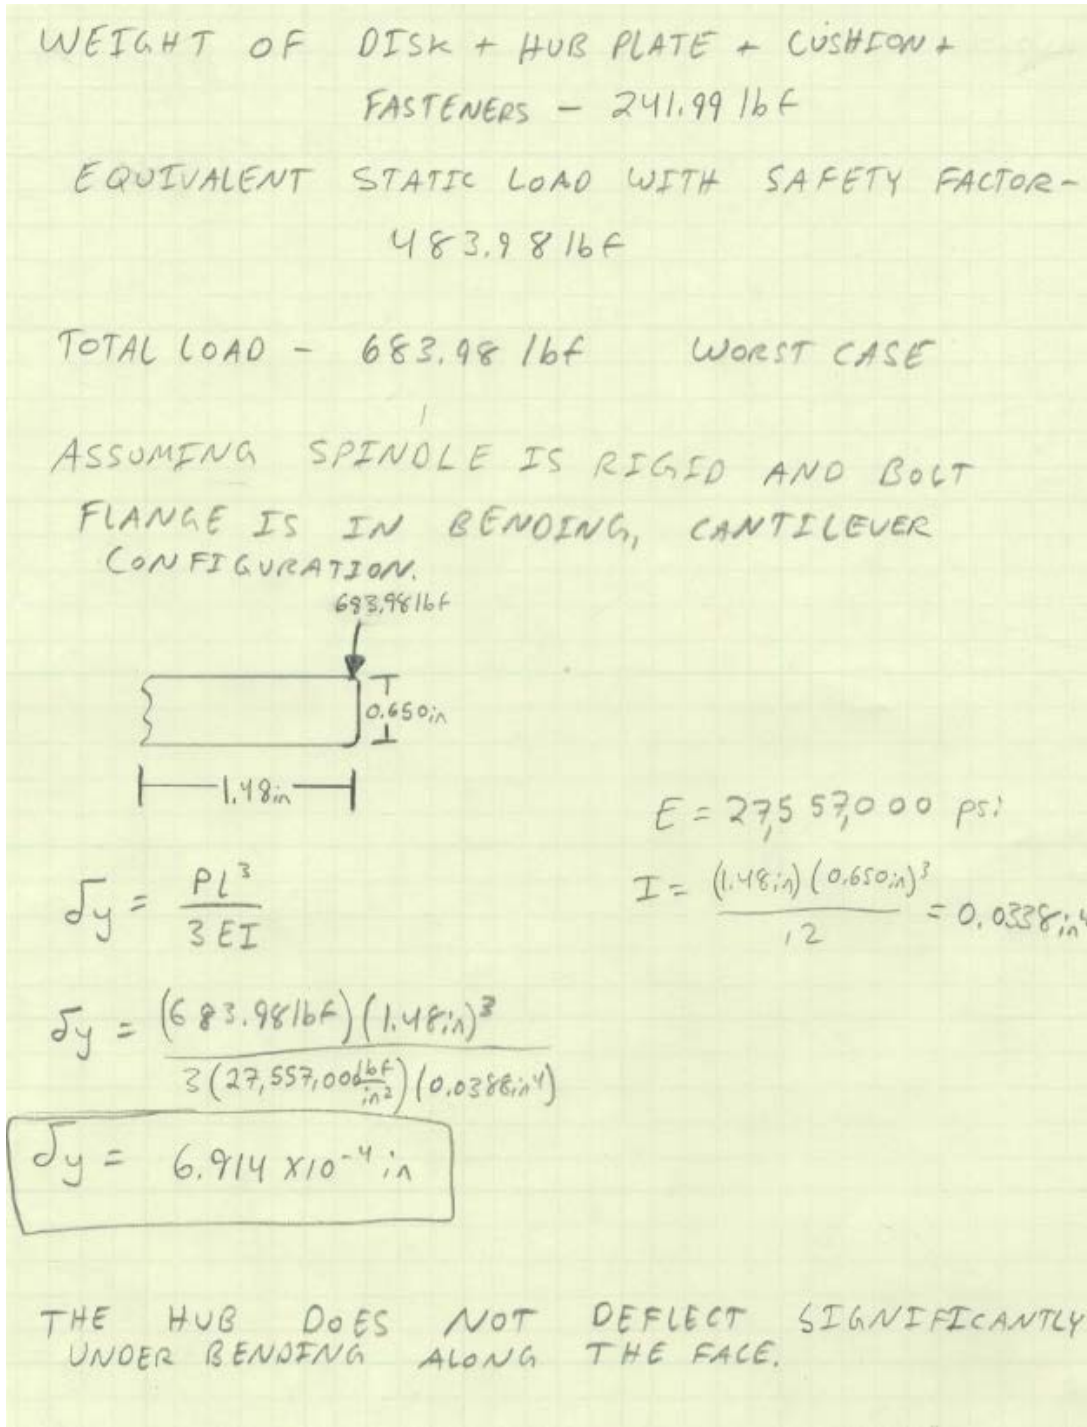 WEIGHT OF DISK + HUB PLATE + CUSHION +
FASTENERS - 241.99 lbf
EQUIVALENT STATIC LOAD WITH SAFETY FACTOR-
483.98 lbf
TOTAL LOAD - 683.98 lbf WORST CASE
ASSUMING SPINDLE IS RIGID AND BOLT
FLANGE IS IN BENDING, CANTILEVER
CONFIGURATION.
683.98 lbf
0.650in
1.48in
E = 27,557,000 psi
δy = PL³ / 3EI
I = (1.48in)(0.650in)³ / 12 = 0.0338in⁴
δy = (683.98 lbf)(1.48in)³ / 3(27,557,000 lbf/in²)(0.0388in⁴)
δy = 6.914 x10⁻⁴ in
THE HUB DOES NOT DEFLECT SIGNIFICANTLY
UNDER BENDING ALONG THE FACE.